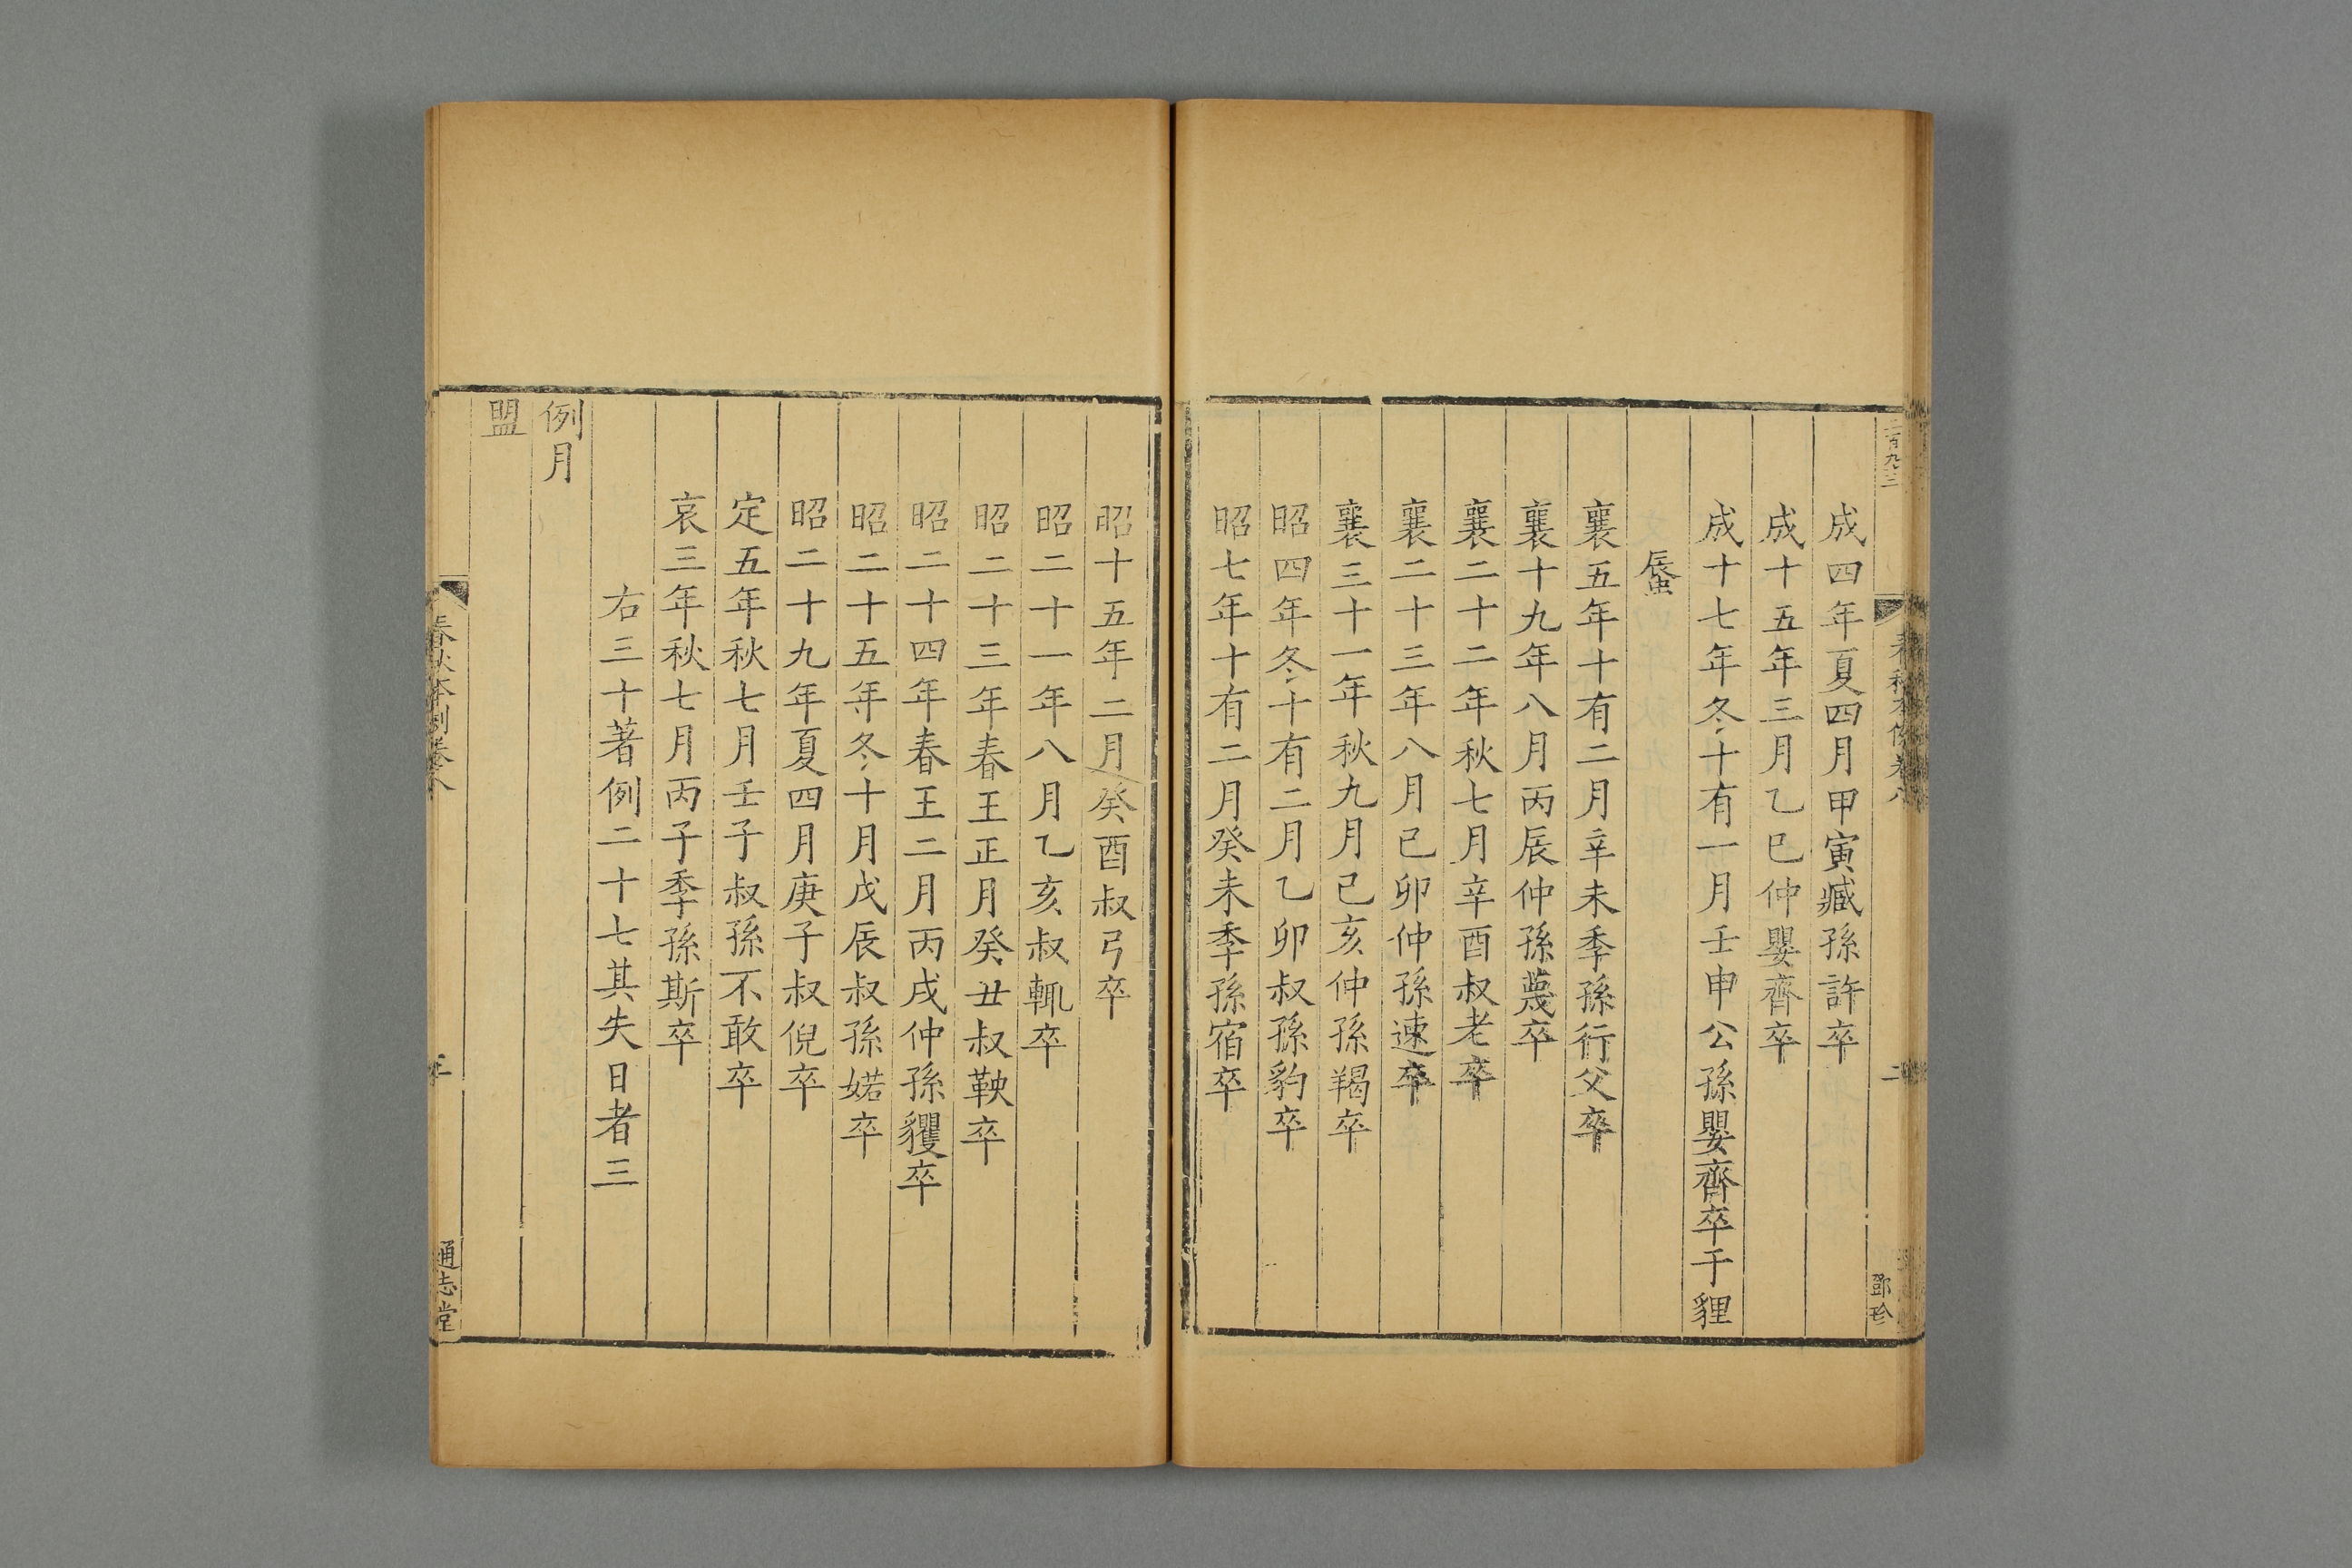 二百九三
春秋本例卷八
二
鄧珍
成四年夏四月甲寅臧孫許卒
成十五年三月乙巳仲嬰齊卒
成十七年冬十有一月壬申公孫嬰齊卒于貍
蜃
襄五年十有二月辛未季孫行父卒
襄十九年八月丙辰仲孫蔑卒
襄二十二年秋七月辛酉叔老卒
襄二十三年八月己卯仲孫速卒
襄三十一年秋九月己亥仲孫羯卒
昭四年冬十有二月乙卯叔孫豹卒
昭七年十有二月癸未季孫宿卒
昭十五年二月癸酉叔弓卒
昭二十一年八月乙亥叔輒卒
昭二十三年春王正月癸丑叔鞅卒
昭二十四年春王二月丙戌仲孫貜卒
昭二十五年冬十月戊辰叔孫婼卒
昭二十九年夏四月庚子叔倪卒
定五年秋七月壬子叔孫不敢卒
哀三年秋七月丙子季孫斯卒
右三十著例二十七其失日者三
例月
盟
春秋本例卷八
通志堂